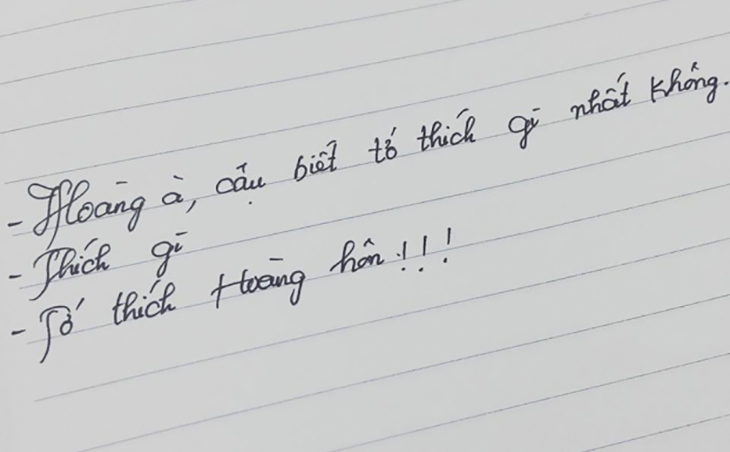 - Hoàng à, cậu biết tớ thích gì nhất không.
- Thích gì
- Tớ thích Hoàng hôn!!!